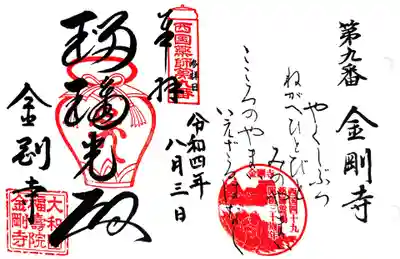 第九番 金剛寺
やくしぶつ
ねがへひとびと
こころのやま
いえざるはなし
奉拝
令和四年
八月三日
瑠璃光殿
金剛寺
福壽院
金剛寺